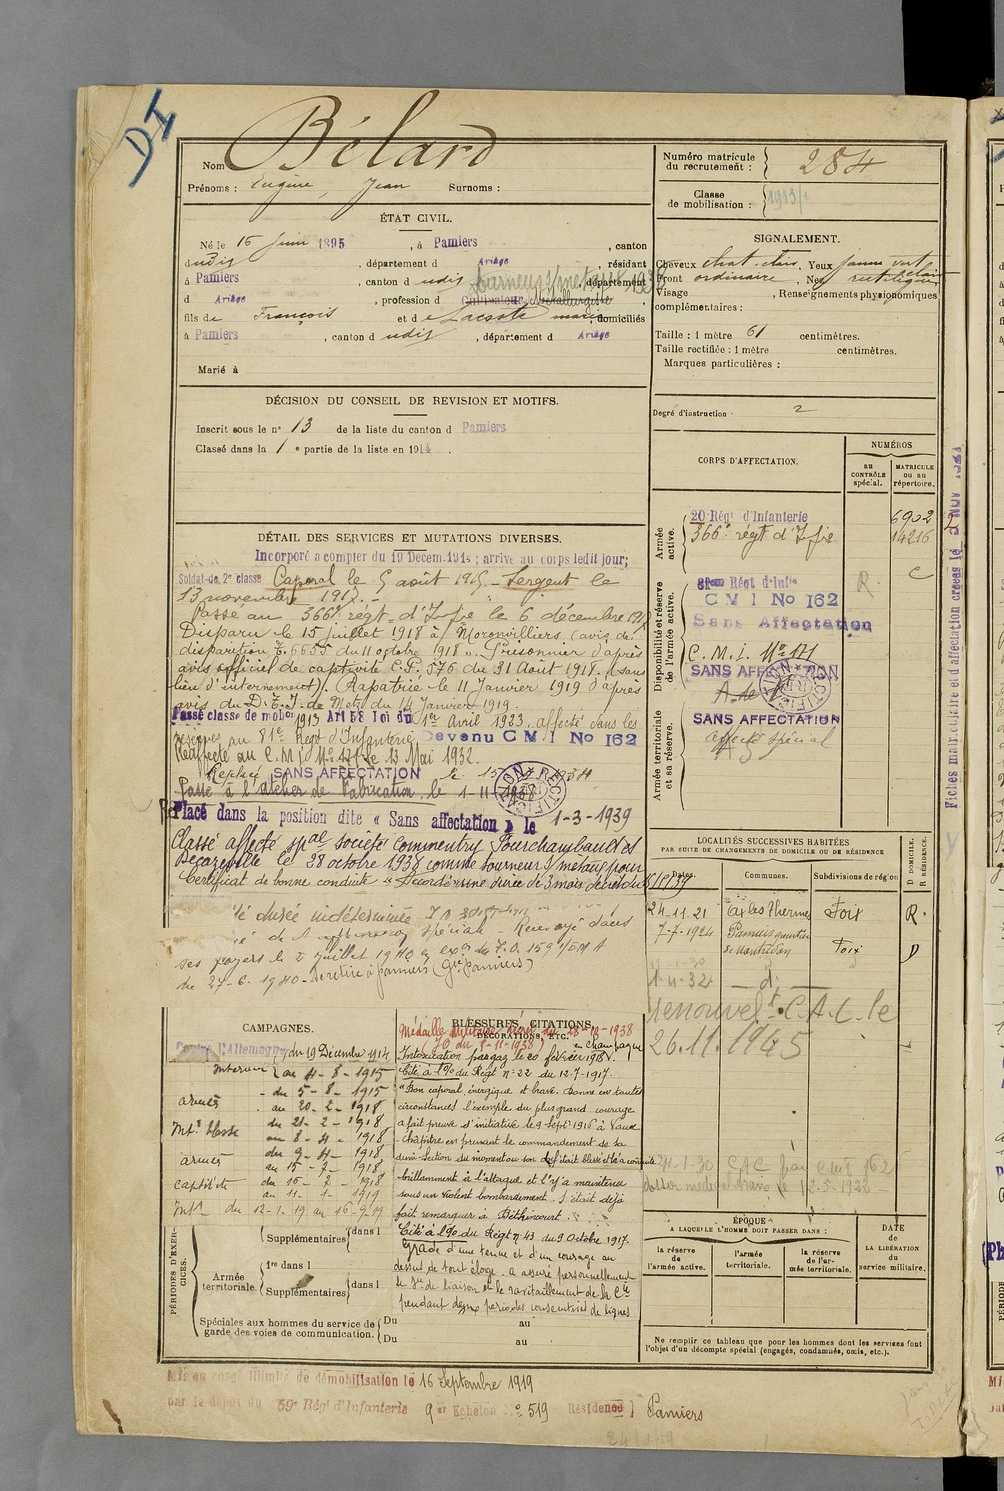 DI
Nom Bélard
Prénoms : Eugène, Jean Surnoms :
Numéro matricule du recrutement : 284
Classe de mobilisation : 1913
ÉTAT CIVIL.
Né le 15 Juin 1895, à Pamiers, canton
dudit, département d Ariège, résidant
à Pamiers, canton d udit, département
d Ariège, profession d Cultivateur
fils de François et de Lacoste domiciliés
à Pamiers, canton d udit, département d Ariège
Marié à
SIGNALEMENT.
Cheveux chat. clair, Yeux jaune vert
Front ordinaire, Nez rectiligne
Visage , Renseignements physionomiques
complémentaires :
Taille : 1 mètre 61 centimètres.
Taille rectifiée : 1 mètre centimètres.
Marques particulières :
Degré d'instruction : 2
DÉCISION DU CONSEIL DE REVISION ET MOTIFS.
Inscrit sous le n° 13 de la liste du canton d Pamiers
Classé dans la 1 e partie de la liste en 1914.
CORPS D'AFFECTATION.
NUMÉROS
au CONTRÔLE spécial.
MATRICULE ou au répertoire.
Armée active.
20 Régt d'Infanterie 6902
366e régt d'Infie 14216
Disponibilité et réserve de l'armée active.
81eme Régt d'Infie
C M I No 162
Sans Affectation
C. M. I. No 171
SANS AFFECTATION
Armée territoriale et sa réserve.
SANS AFFECTATION
affecté spécial
DÉTAIL DES SERVICES ET MUTATIONS DIVERSES.
Incorporé à compter du 19 Décem. 1914 ; arrivé au corps ledit jour;
Soldat de 2e classe Caporal le 5 août 1915 - Sergent le
13 novembre 1917. -
Passé au 366e régt d'Infie le 6 décembre 1917
Disparu le 15 juillet 1918 à Moronvilliers (avis de
disparition E. 6655 du 11 octobre 1918 ". Prisonnier d'après
avis officiel de captivité C.F. 576 du 31 Août 1918. (sans
lieu d'internement). Rapatrié le 11 Janvier 1919 d'après
avis du D. E. I. de Metz du 14 Janvier 1919.
Passé classe de mobon 1913 Art 58 Loi du 1er Avril 1923. affecté dans les
réserves au 81e Régt d'Infanterie Devenu C M I No 162
Réaffecté au C. M. I. No 171 le 13 Mai 1932.
Replacé SANS AFFECTATION le 15
Passé à l'atelier de Fabrication, le 1-11-1938
Placé dans la position dite « Sans affectation » le 1-3-1939
RECTIFICATION
Classé affecté spal société Commentry Fourchambault et
Decazeville le 28 octobre 1938 comme tourneur s/ métaux pour
Certificat de bonne conduite "Accordé" une durée de 3 mois
durée indéterminée
spécial - Renvoyé dans
ses foyers le 2 juillet 1940
du 27-6-1940 - se retire à Pamiers
LOCALITÉS SUCCESSIVES HABITÉES
PAR SUITE DE CHANGEMENTS DE DOMICILE OU DE RÉSIDENCE
Dates. Communes. Subdivisions de région D DOMICILE. R RÉSIDENCE.
24-11-21 Ax les Thermes Foix R.
7-7-1924 Pamiers quartier de Montredon Foix D
1-4-32 d°
Renouvelt C.A.C. le
26.11.1945
CAMPAGNES.
Contre l'Allemagne du 19 Décembre 1914
Intérieur au 4-8-1915
armées du 5-8-1915
au 20-2-1918
Intr blessé du 21-2-1918
au 8-4-1918
armées du 9-4-1918
au 15-7-1918
Captivité du 16-7-1918
au 11-1-1919
Intr du 12-1-19 au 16-9-19
BLESSURES, CITATIONS, DÉCORATIONS, ETC.
Médaille militaire décret du 28-10-1938
(JO du 8-11-1938)
en Champagne
Intoxication par gaz le 20 février 1918.
Cité à l'O. du Régt No 22 du 12-7-1917.
"Bon caporal, énergique et brave. Donne en toutes
circonstances l'exemple du plus grand courage
a fait preuve d'initiative le 9 Septe 1916 à Vaux
Chapitre en prenant le commandement de sa
demi-section au moment où son chef était blessé et l'a conduite
brillamment à l'attaque et l'y a maintenu
sous un violent bombardement. S'était déjà
fait remarquer à Béthincourt.
Cité à l'O. du Régt No 43 du 9 Octobre 1917.
Gradé d'une tenue et d'un courage au
dessus de tout éloge. a assuré personnellement
le Sce de liaison et le ravitaillement de la Cie
pendant deux périodes consécutives de lignes
PÉRIODES D'EXERCICES.
Supplémentaires dans l
Armée territoriale.
1re dans l
Supplémentaires dans l
Spéciales aux hommes du service de garde des voies de communication.
Du au
Du au
ÉPOQUE
A LAQUELLE L'HOMME DOIT PASSER DANS :
la réserve de l'armée active.
l'armée territoriale.
la réserve de l'armée territoriale.
DATE DE LA LIBÉRATION du service militaire.
Ne remplir ce tableau que pour les hommes dont les services font
l'objet d'un décompte spécial (engagés, condamnés, omis, etc.).
Mis en congé illimité de démobilisation le 16 Septembre 1919
par le dépôt du 59e Régt d'Infanterie 9e Echelon No 519 Résidence Pamiers